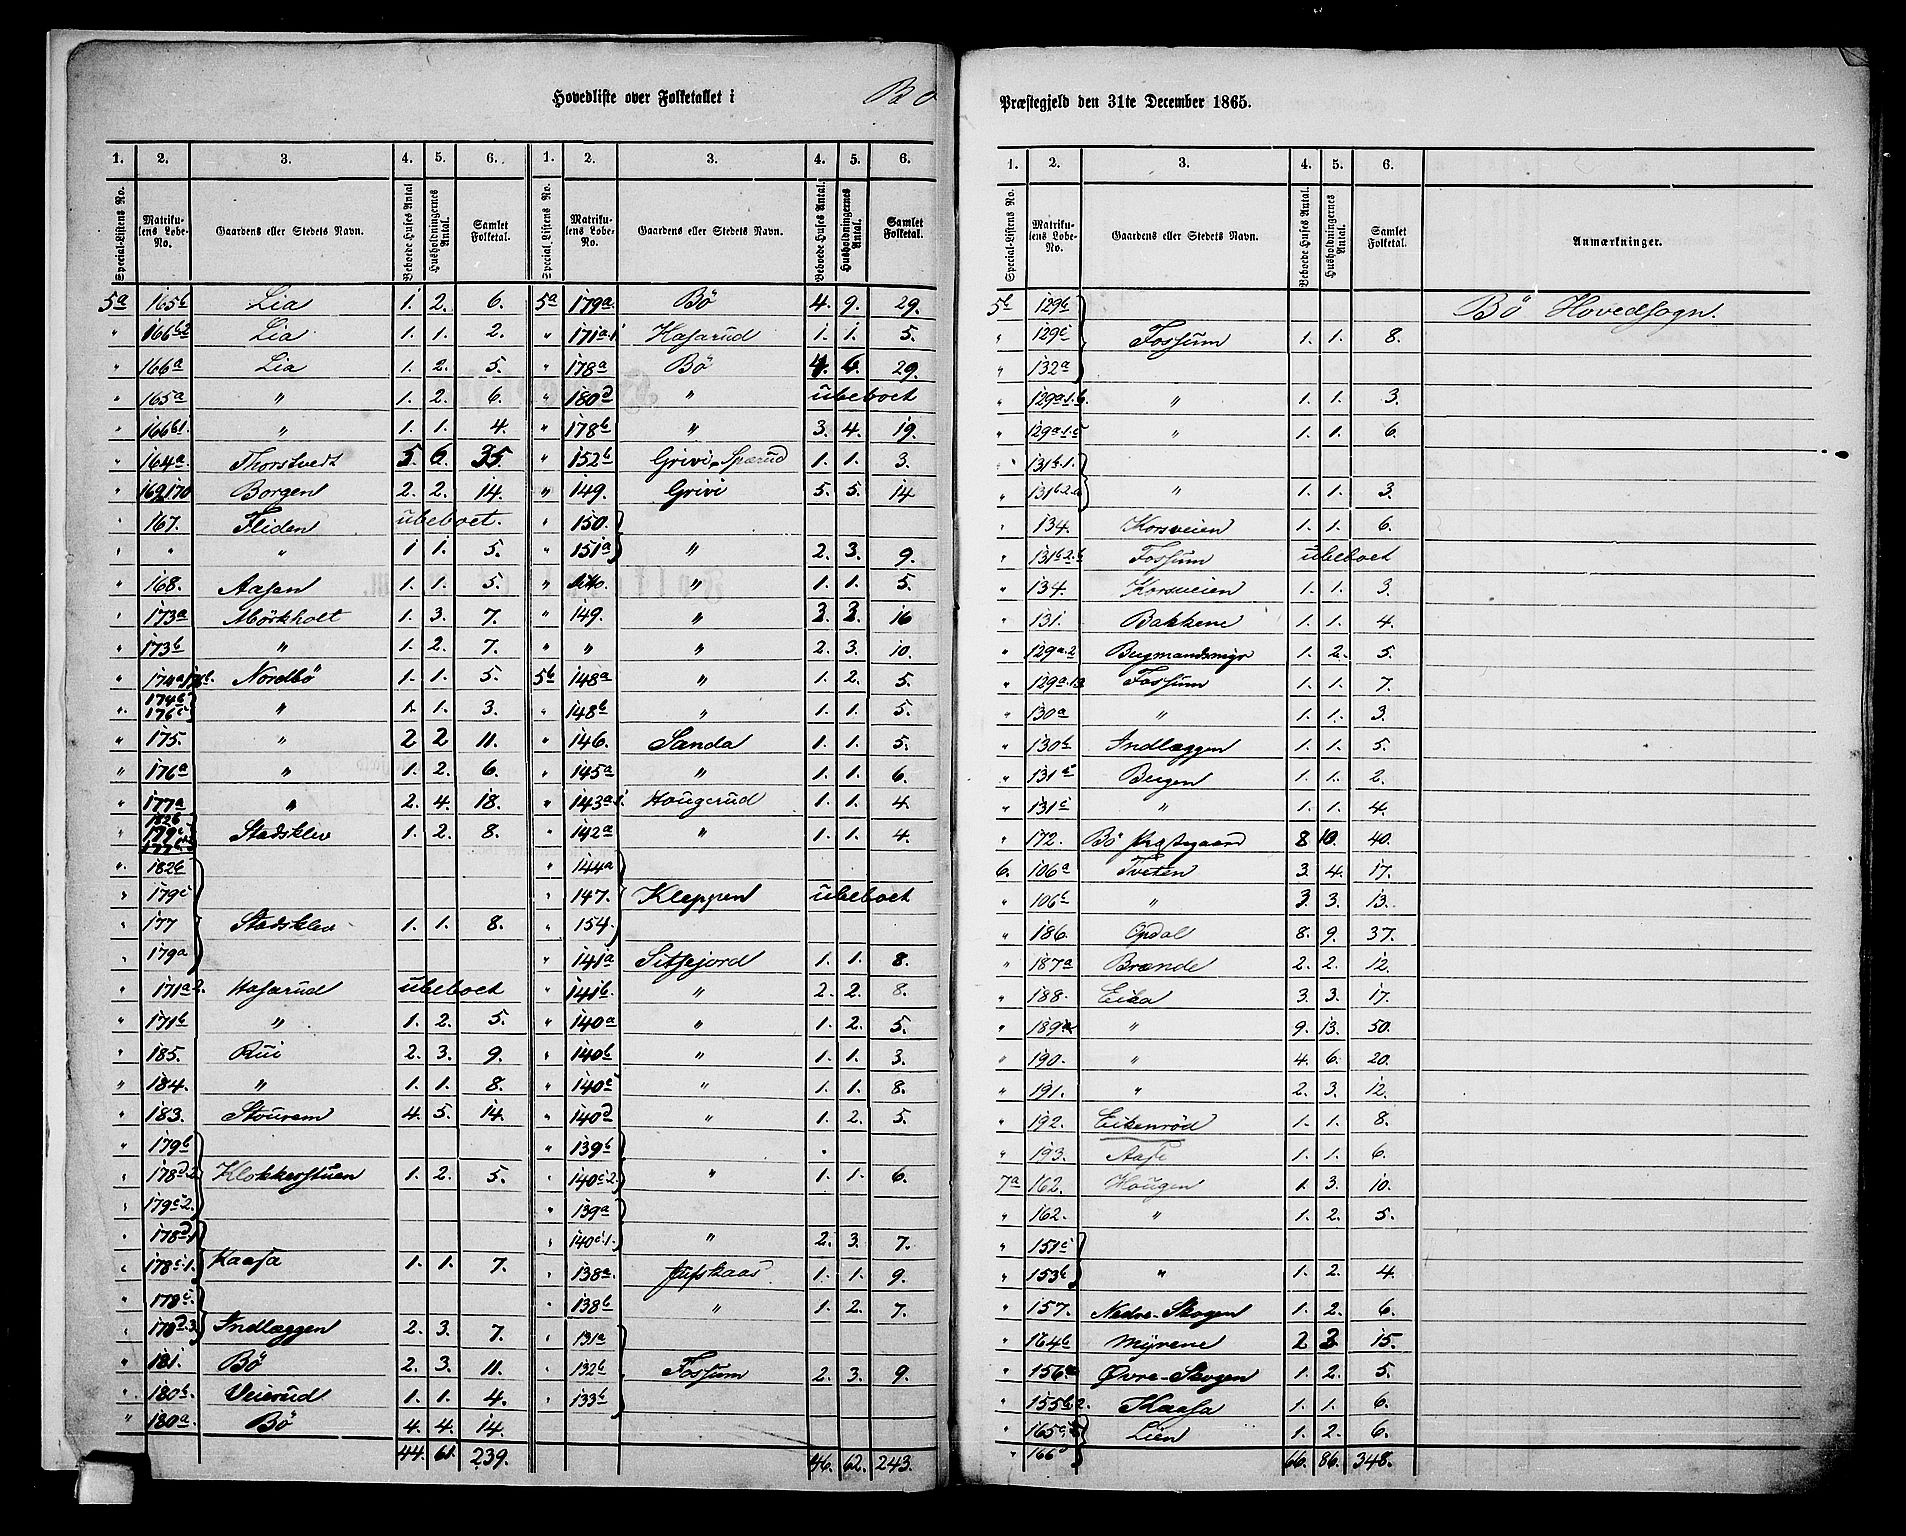 Hovedliste over Folketallet i Bö
Præstegjeld den 31te December 1865.
1. 2. 3. 4. 5. 6. 1. 2. 3. 4. 5. 6.
Special-Listens No. Matrikulens Lobe-No. Gaardens eller Stedets Navn. Beboede Huses Antal Husholdningernes Antal. Samlet Folketal. Special-Listens No. Matrikulens Lobe-No. Gaardens eller Stedets Navn. Beboede Huses Antal. Husholdningernes Antal. Samlet Folketal.
5a 165b Lia 1. 2. 6. 5a 179a Bö 4. 9. 29.
" 166b2 Lia 1. 1. 2. " 171a.1 Hasarud 1. 1. 5.
" 166a Lia 1. 2. 5. " 178a Bö 4. 6. 29.
" 165a " 1. 2. 6. " 180d " ubeboet
" 166b1. " 1. 1. 4. " 178b " 3. 4. 19.
" 164a Thorstvedt 5. 6. 35. " 152b Grivi-Sperud 1. 1. 3.
" 169,170 Borgen 2. 2. 14. " 149. Grivi 5. 5. 14
" 167. Fliden ubeboet. " 150.
" " " 1 1. 5. " 151a " 2. 3. 9.
" 168. Aasen 1. 1. 5. " " 1. 1. 5.
" 173a Mörkholt 1. 3. 7. " 149. " 16
" 173b " 1. 2. 7. " " " 2. 3. 10.
" 174a Nordbö 1. 1. 5. 5b 148a " 1. 2. 5.
" 174b 176c " 1. 1. 3. " 148b " 1. 1. 5.
" 175. " 2 2 11. " 146. Sanda 1. 1. 5.
" 176a " 1. 2. 6. " 145a " 1. 1. 6.
" 177a " 2. 4. 18. " 143a.1. Hougerud 1. 1. 4.
" 182b 179c Stadsklev 1. 2. 8. " 142a " 1. 1. 4.
" 182b " 144a
" 179c " 147. Kleppen ubeboet
" 177 Stadsklev 1. 1. 8. " 154.
" 179a " 141a Sitjejord 1. 1. 8.
" 171a.2. Hasarud ubeboet " 141b. " 2. 2. 8.
" 171b " 1. 2. 5. " 140a " 1. 2. 5.
" 185. Rui 2. 3. 9. " 140b " 1. 1. 3.
" 184. " 1. 1. 8. " 140c " 1. 1. 8.
" 183. Stourem 4. 5. 14. " 140d " 1. 2. 5.
" 179b " 139b
" 178d.2. Klokkerstuen 1. 2. 5. " 140c.2. " 1. 1. 6.
" 179c.2. " 139a
" 178d.1 " 140c.1. " 2. 3. 7.
" 178c.1. Kaasa 1. 1. 7. " 138a. Jufskaas. 1. 1. 9.
" 178c. " 138b " 1. 2. 7.
" 178d.3 Indlæggen 2. 3. 7. " 131a
" 181. Bö 2. 3. 11. " 132b Fossum 2. 3. 9.
" 180b. Veierud 1. 1. 4. " 133b
" 180a. Bö 4. 4. 14.
44. 61. 239. 46. 62. 243.
1. 2. 3. 4. 5. 6.
Special-Listens No. Matrikulens Lobe-No. Gaardens eller Stedets Navn. Beboede Huses Antal. Husholdningernes Antal. Samlet Folketal. Anmærkninger.
5b 129b Bö Hovedsogn.
" 129c Fossum 1. 1. 8.
" 132a
" 129a.1.b. " 1. 1. 3.
" 129a.1.c " 1. 1. 6.
" 131b.1.
" 131b.2.a " 1. 1. 3.
" 134. Korsveien 1. 1. 6.
" 131b.2.b Fossum ubeboet
" 134. Korsveien 1. 1. 3.
" 131. Bakkene 1. 1. 4.
" 129a.2 Bugmandsmyr 1. 2. 5.
" 129a.13. Fossum 1. 1. 7.
" 130a " 1. 1. 3.
" 130b Indlæggen 1. 1. 5.
" 131d Bergen 1. 1. 2.
" 131c " 1. 1. 4.
" 172. Bö Præstegaard 8 10. 40.
6. 106a Tveten 3. 4. 17.
" 106b " 3. 3. 13.
" 186. Opdal 8. 9. 37.
" 187a Brænde 2. 2. 12.
" 188. Eika 3. 3. 17.
" 189a " 9. 13. 50.
" 190. " 4. 6. 20.
" 191. " 2. 3. 12.
" 192. Eikenröd 1. 1. 8.
" 193. Aase 1. 1. 6.
7a 162. Hougen 1. 3. 10.
" 162. " 1. 2. 5.
" 151c
" 153b " 1. 2. 4.
" 157. Nedre-Skogen 1. 2. 6.
" 164b Myrene 2 3. 15.
" 156a Övre-Skogen 1. 2. 5.
" 155b.2. Kaasa 1. 1. 6.
" 165 Lien 1. 2. 6.
" 166
66. 86. 348.